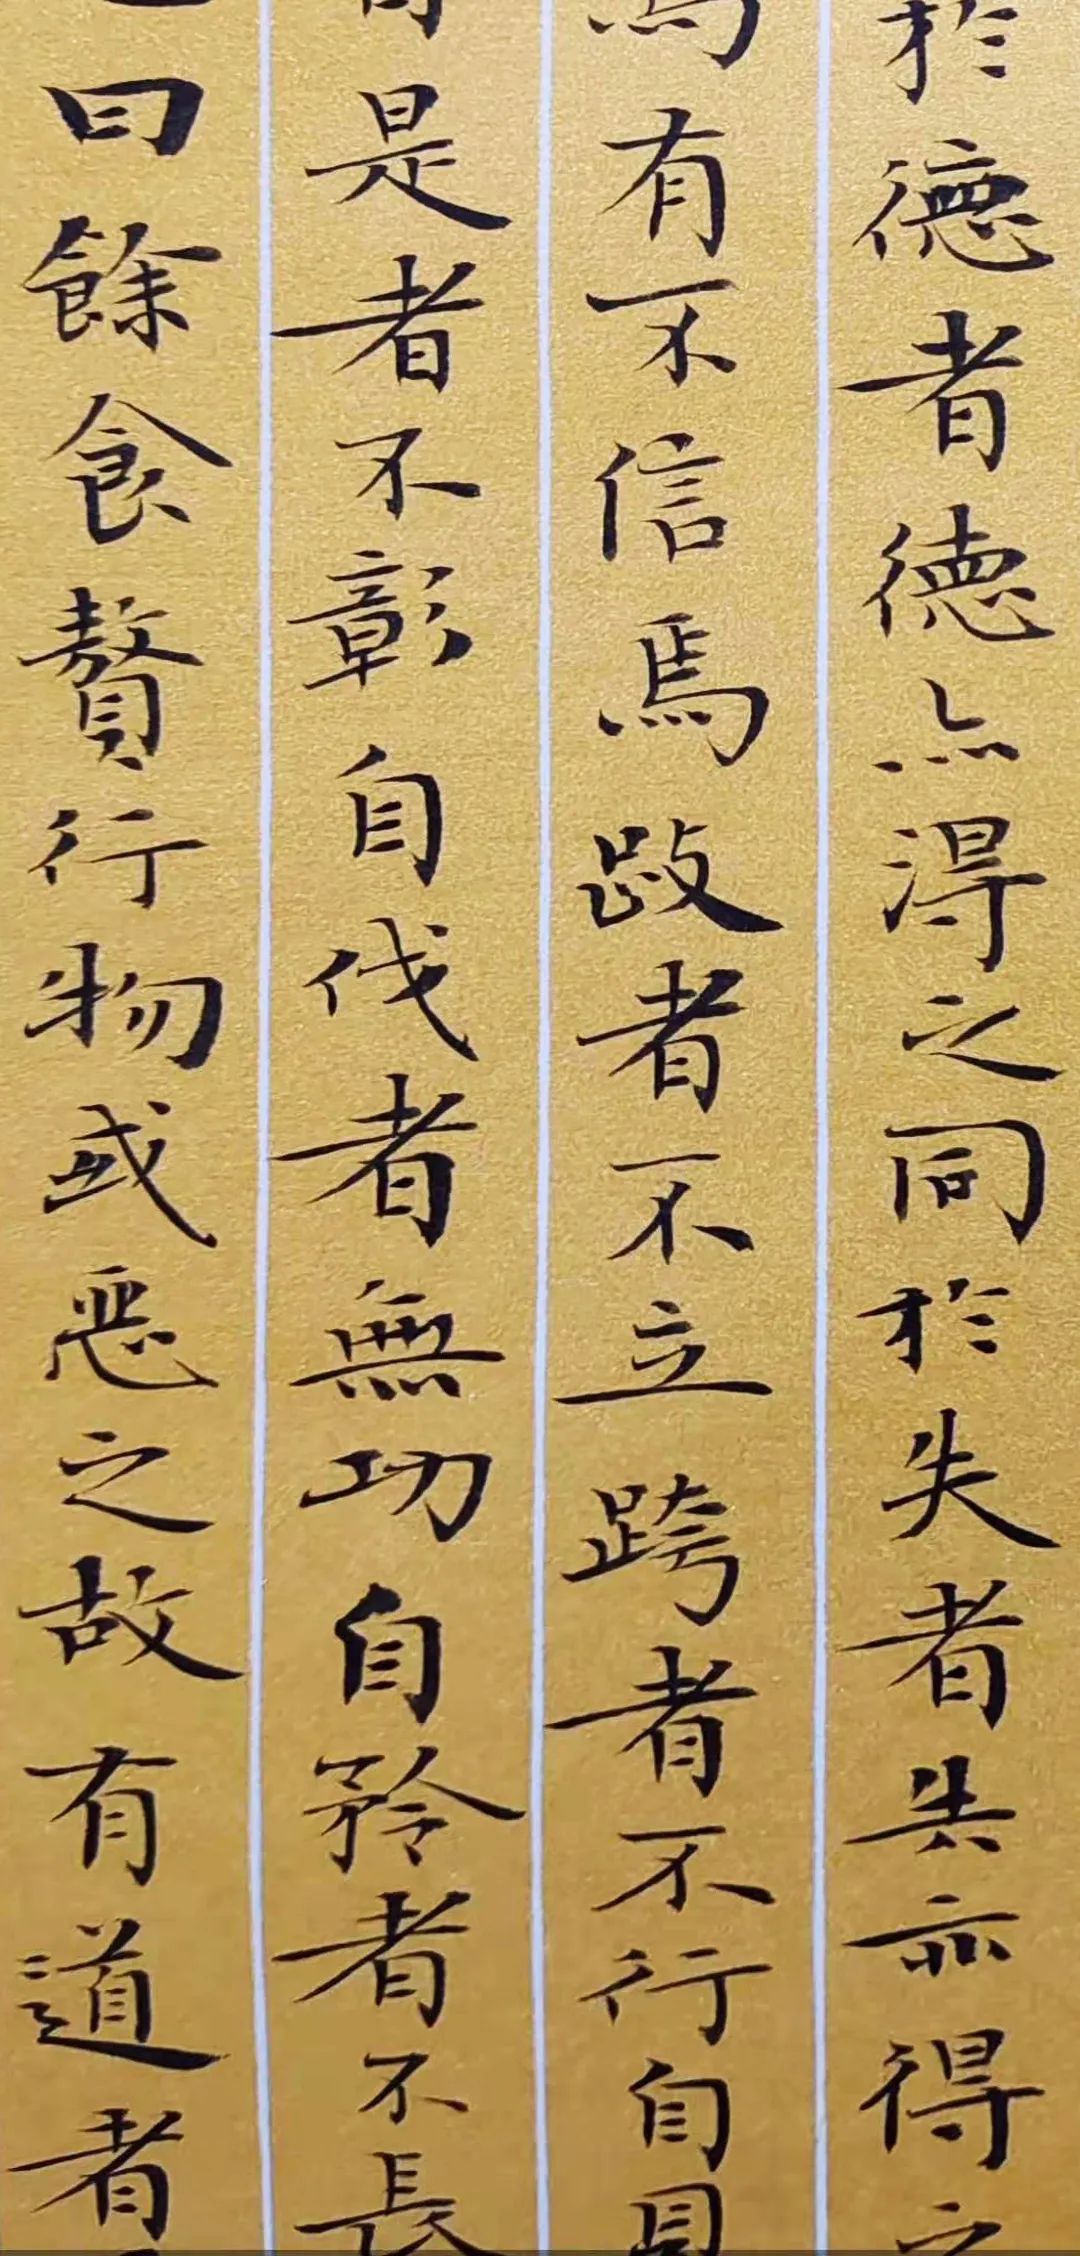 於德者德亦得之同於失者失亦得之
焉有不信焉跂者不立跨者不行自見
是者不彰自伐者無功自矜者不長
曰餘食贅行物或惡之故有道者